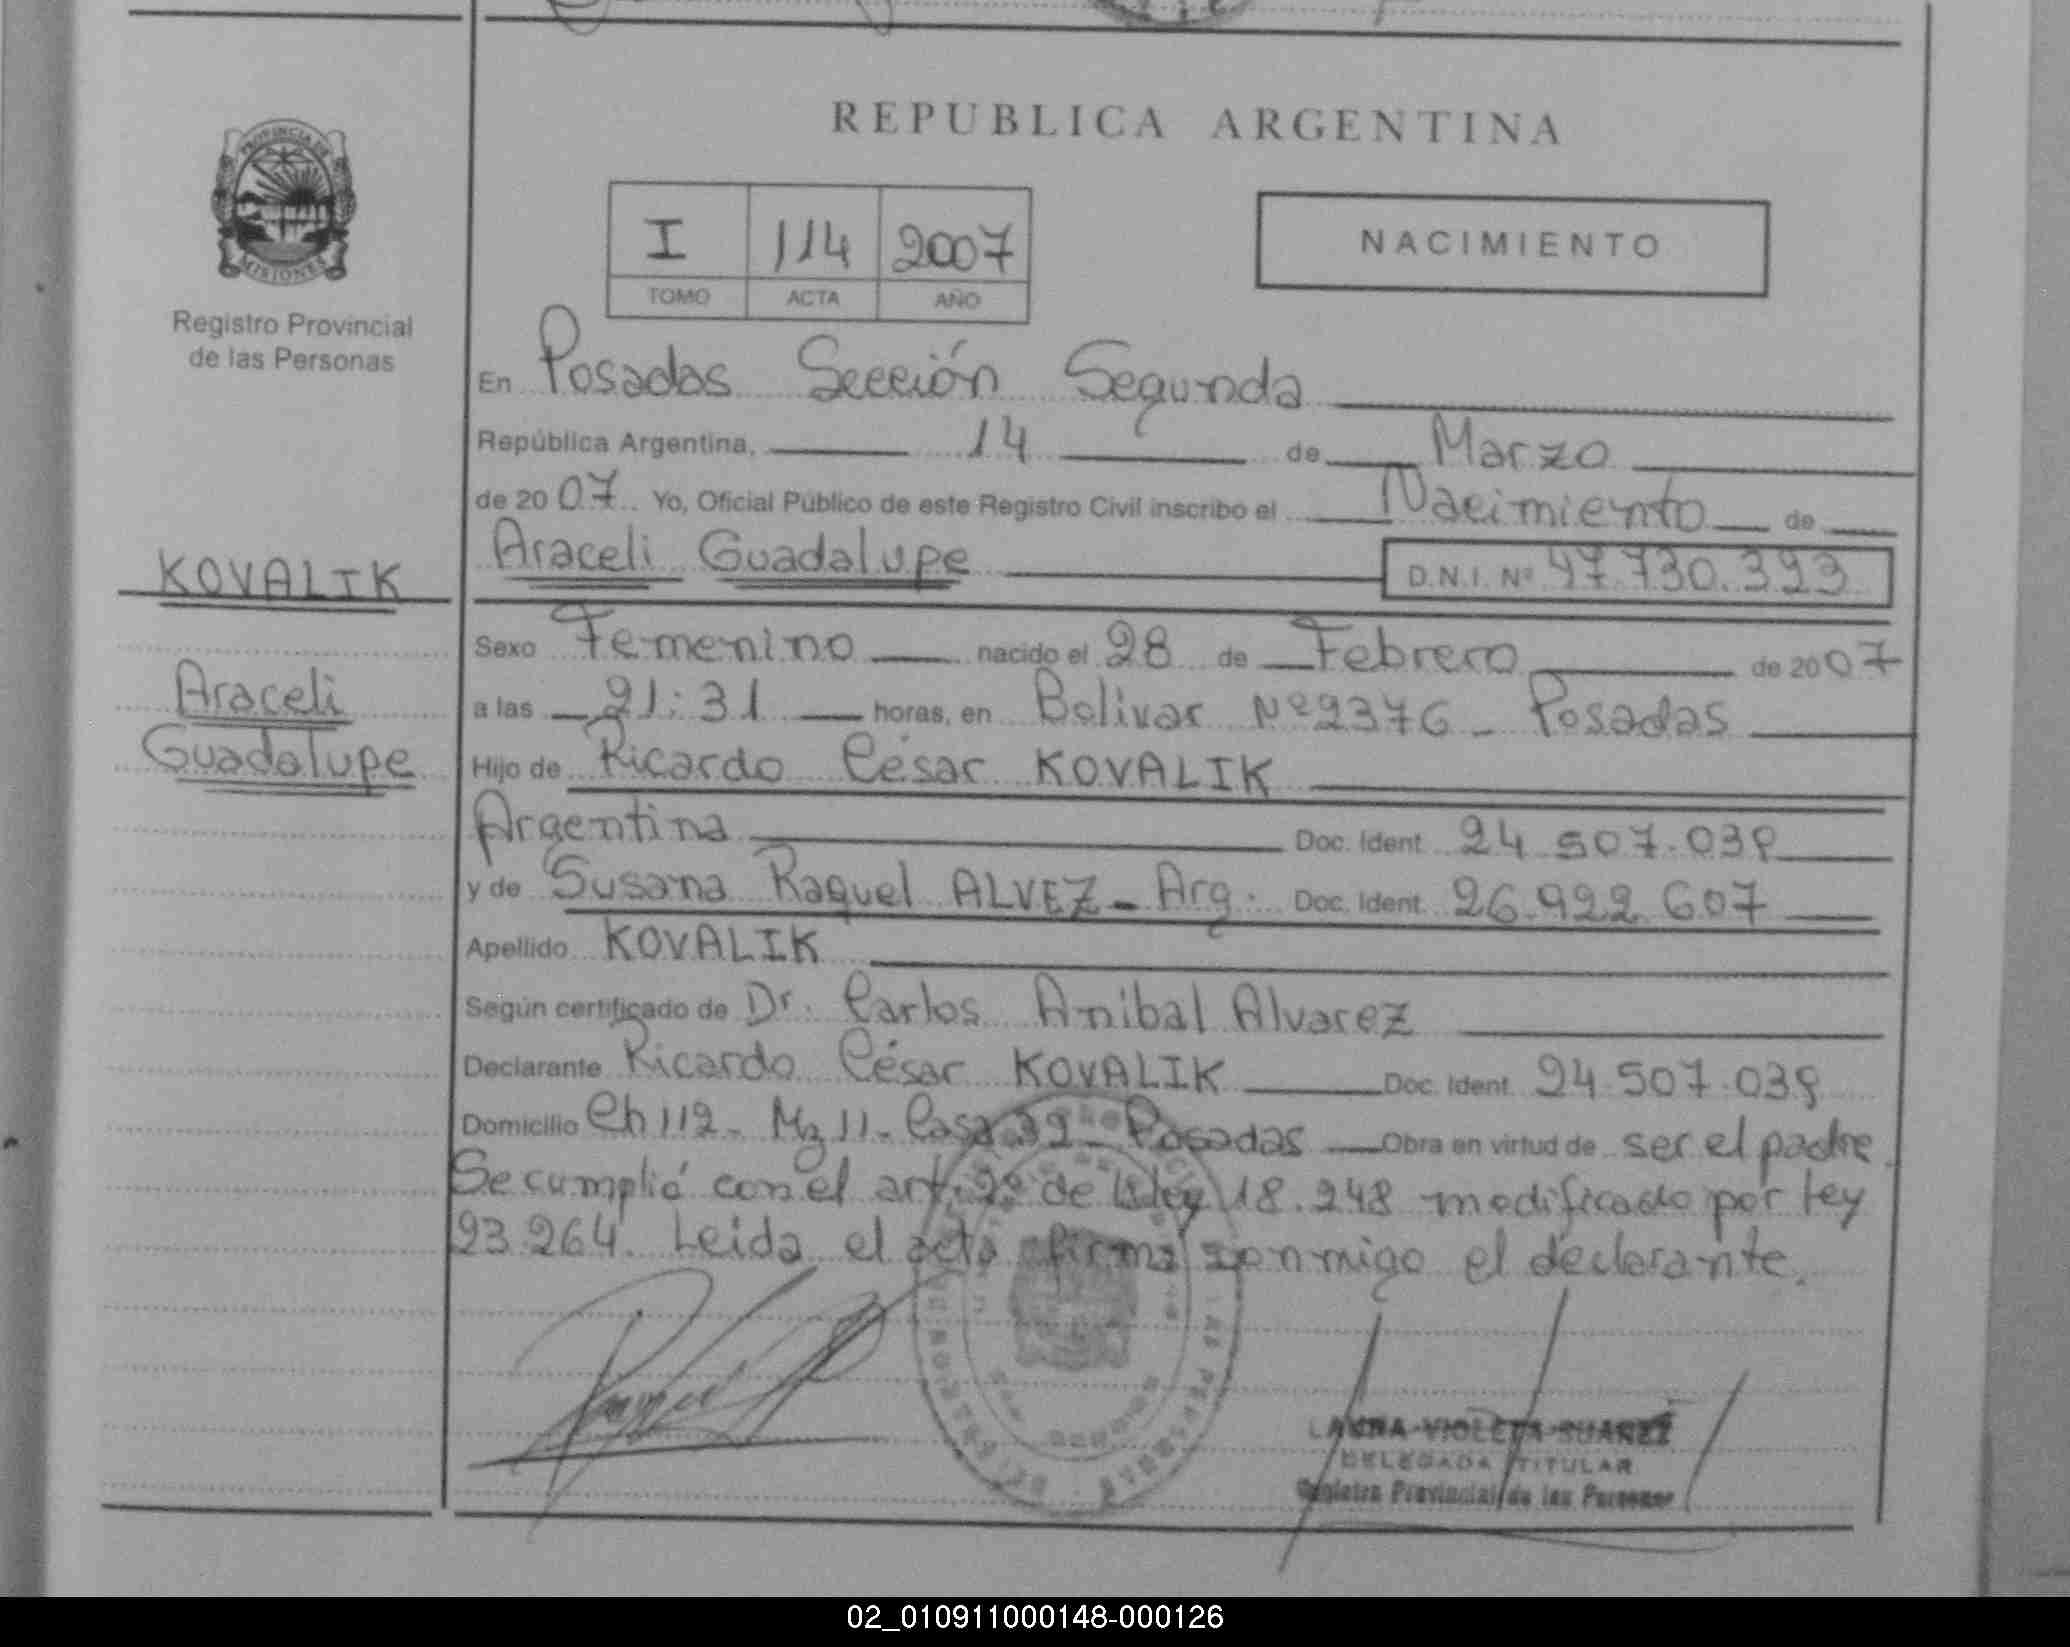 REPUBLICA ARGENTINA
PROVINCIA DE
MISIONES
Registro Provincial
de las Personas
I 114 2007
TOMO ACTA AÑO
NACIMIENTO
En Posadas Sección Segunda
República Argentina, 14 de Marzo
de 2007. Yo, Oficial Público de este Registro Civil inscribo el Nacimiento de
KOVALIK
Araceli Guadalupe D.N.I. Nº 47.730.393
Sexo Femenino nacido el 28 de Febrero de 2007
Araceli
a las 21:31 horas, en Bolivar Nº 2376 - Posadas
Guadalupe
Hijo de Ricardo César KOVALIK
Argentina Doc. Ident. 24.507.039
y de Susana Raquel ALVEZ - Arg. Doc. Ident. 26.922.607
Apellido KOVALIK
Según certificado de Dr. Carlos Anibal Alvarez
Declarante Ricardo César KOVALIK Doc. Ident. 24.507.039
Domicilio Ch 112 - Mz 11 - Casa 32 - Posadas Obra en virtud de ser el padre.
Se cumplió con el art. 2º de la ley 18.248 modificado por ley
23.264. Leida el acta firma conmigo el declarante.
LAURA VIOLETA SUAREZ
DELEGADA TITULAR
Registro Provincial de las Personas
02_010911000148-000126